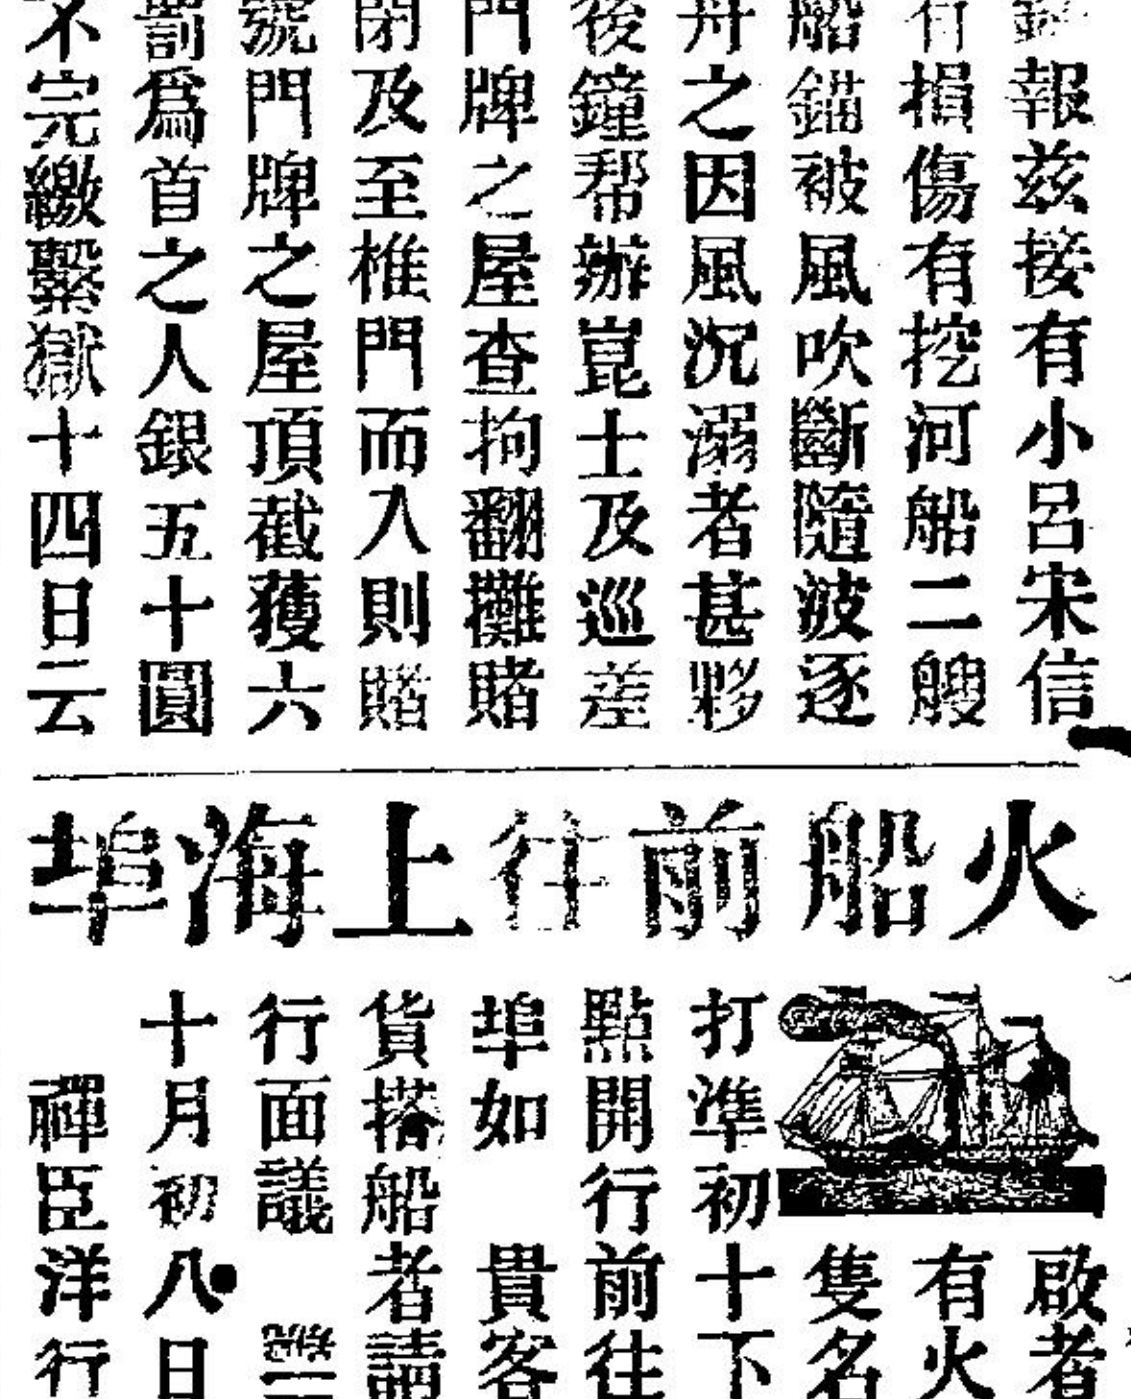 報茲接有小呂宋信
有損傷有挖河船二艘
船錨被風吹斷隨波逐
舟之因風沉溺者甚夥
後鐘帮辦崑士及巡差
門牌之屋查拘翻攤賭
閉及至椎門而入則賭
號門牌之屋頂截獲六
罰爲首之人銀五十圓
不完繳繫獄十四日云
火船前往上海埠
啟者
有火
隻名
打準初十下
點開行前往
埠如貴客
貨搭船者請
行面議
十月初八日
禪臣洋行